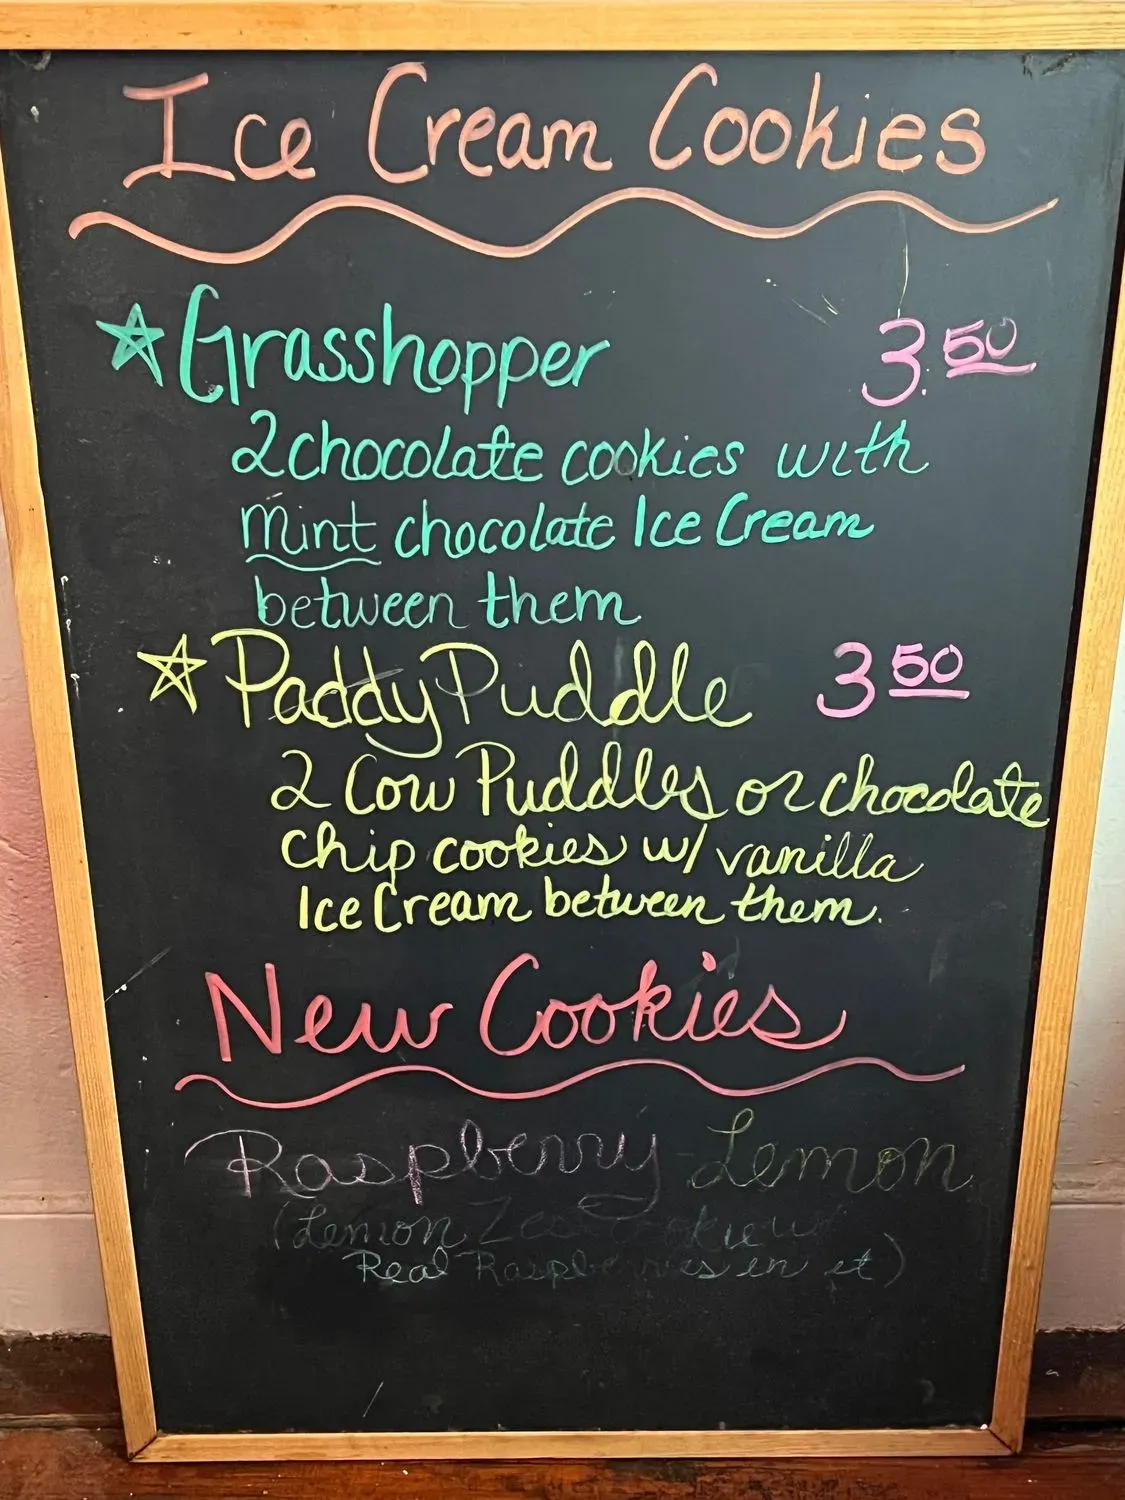 Ice Cream Cookies
Grasshopper 3.50
2 chocolate cookies with
mint chocolate Ice Cream
between them
Paddy Puddle 3 50
2 Cow Puddles or chocolate
chip cookies w/ vanilla
Ice Cream between them.
New Cookies
Raspberry-Lemon
(Lemon Zest Cookie w/
Real Raspberries in it)